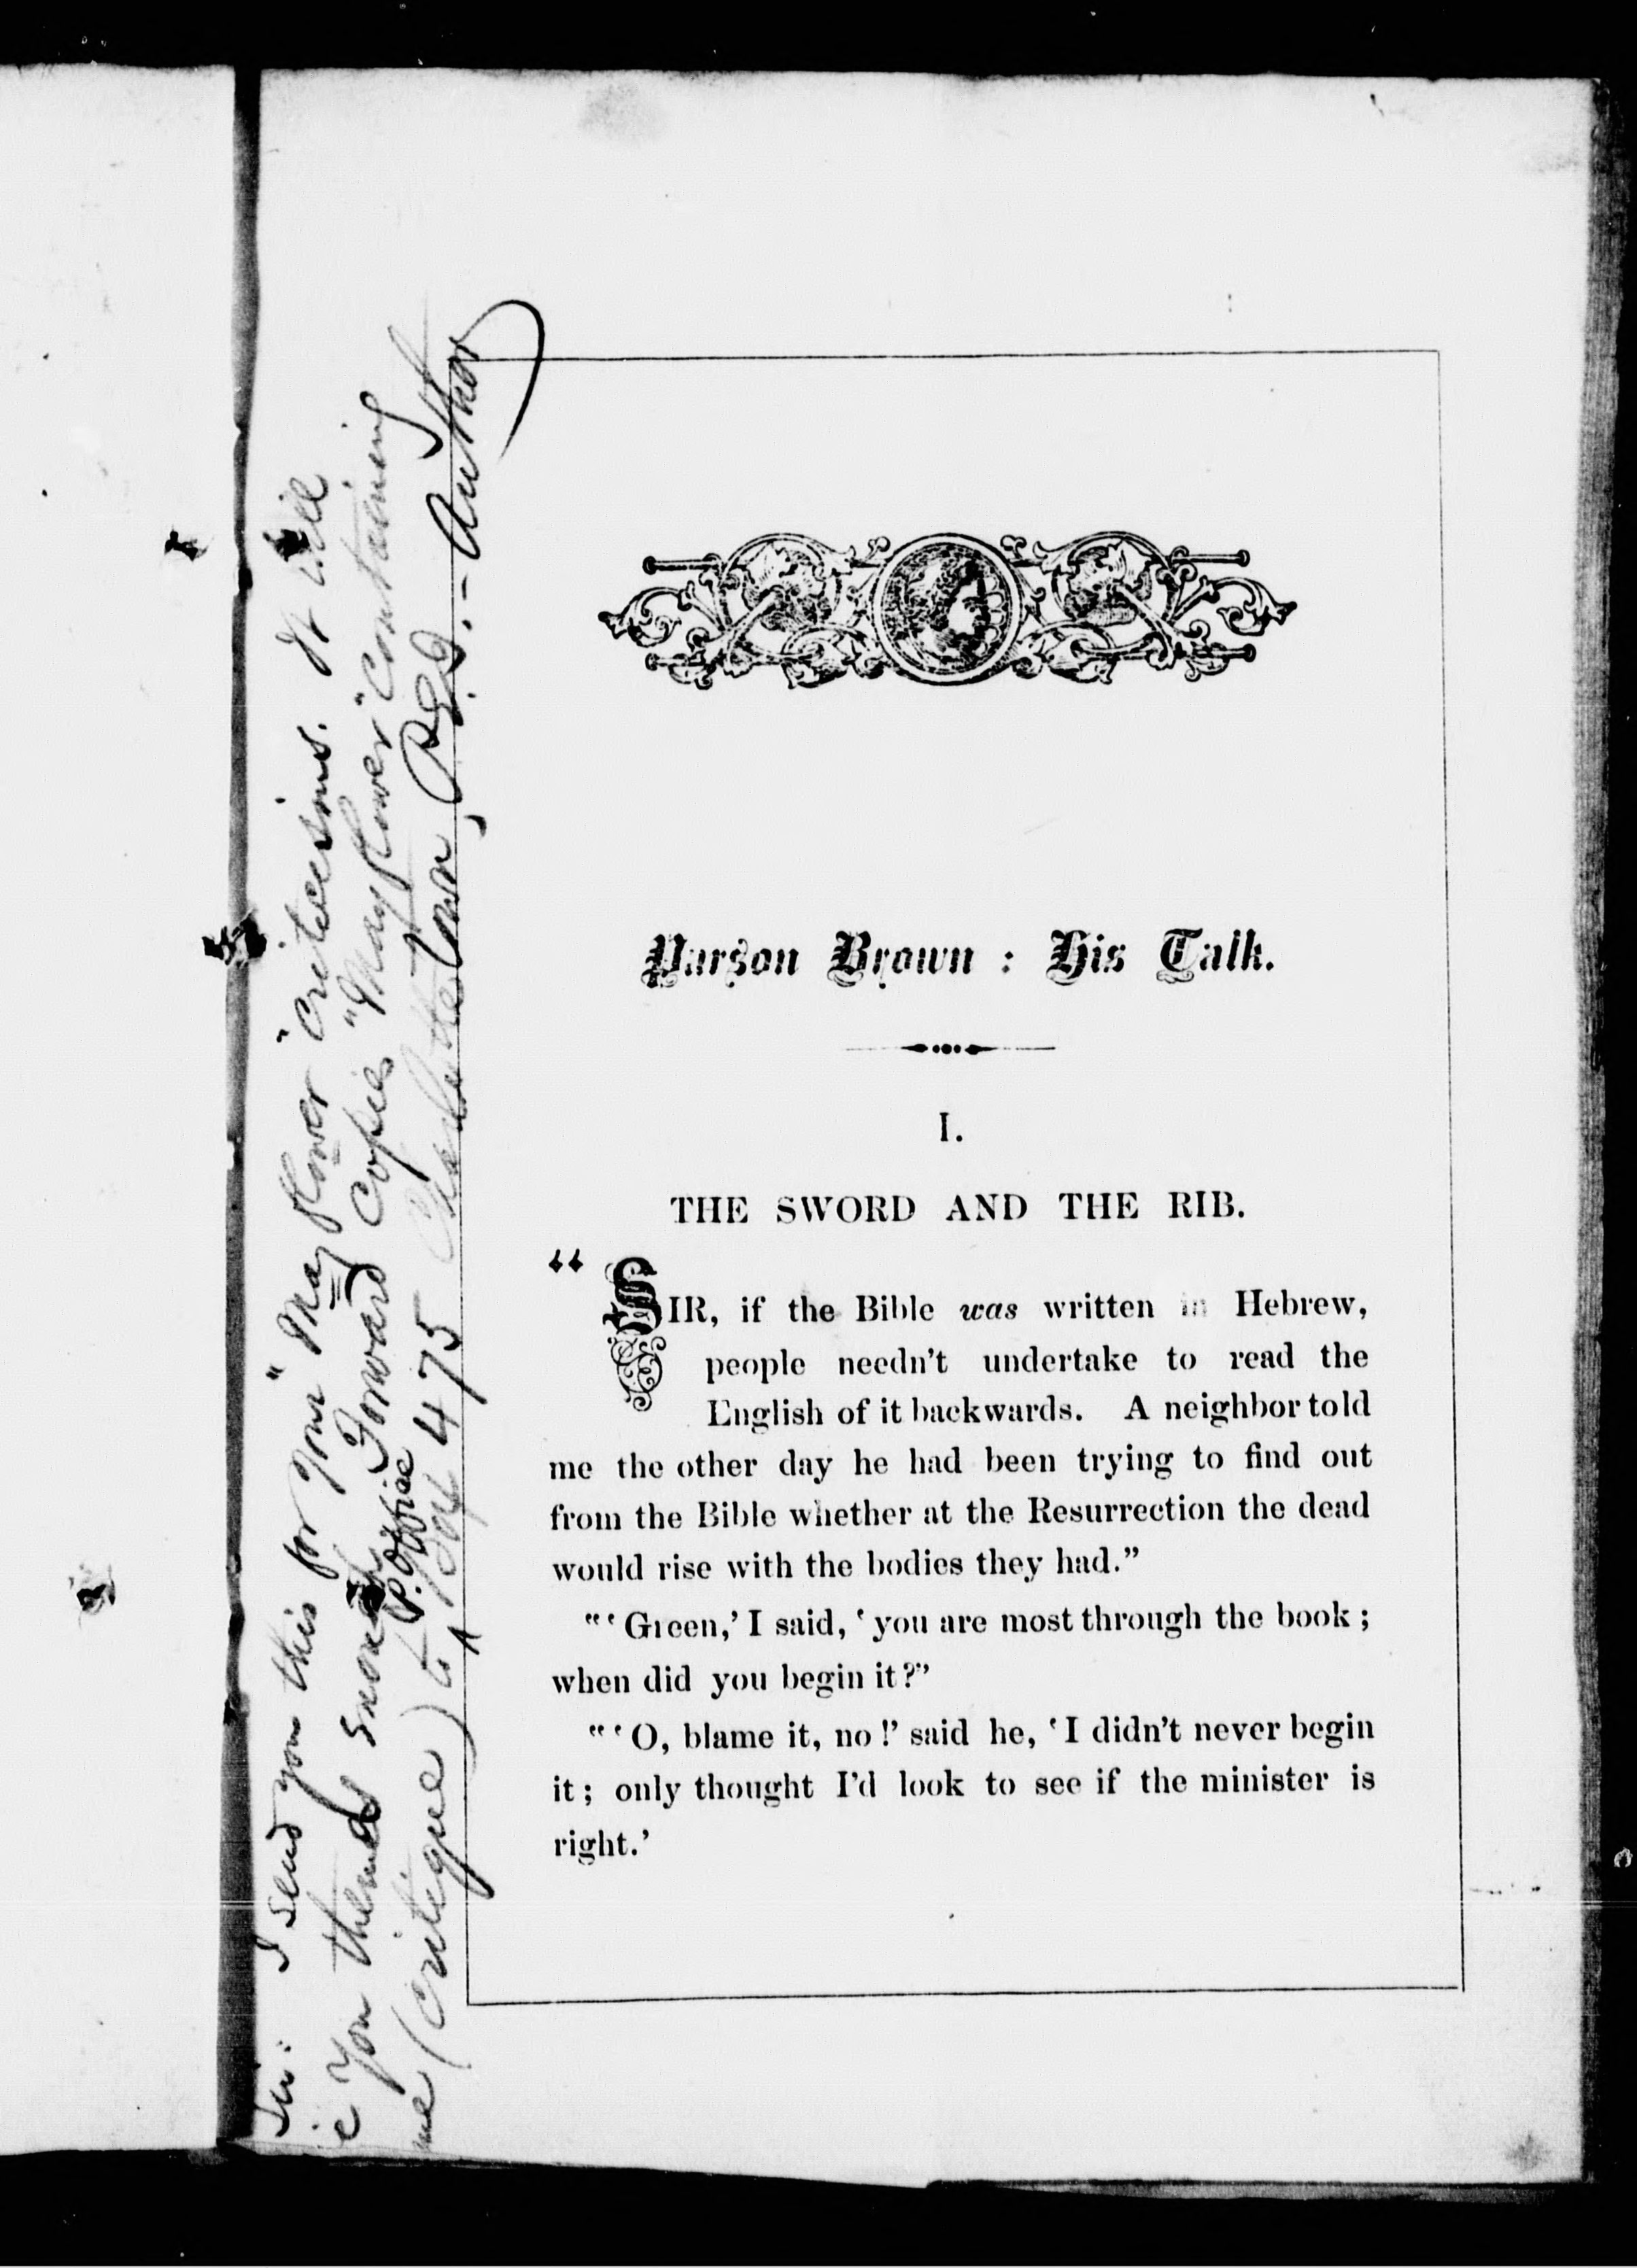 Sir: I send you this for your "Mayflower" criticisms. It will
you them as enough Forward Copies "Mayflower" containing
me (Critique) to P. Office Box 475 Charlottetown, P.E.I. - Author
Parson Brown : His Talk.
I.
THE SWORD AND THE RIB.
"SIR, if the Bible was written in Hebrew,
people needn't undertake to read the
English of it backwards. A neighbor told
me the other day he had been trying to find out
from the Bible whether at the Resurrection the dead
would rise with the bodies they had."
"'Green,' I said, 'you are most through the book ;
when did you begin it?"
"'O, blame it, no!' said he, 'I didn't never begin
it; only thought I'd look to see if the minister is
right.'